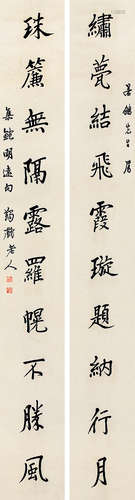 繡甍結飛霞璇題納行月
珠簾無隔露羅幌不勝風
集鮑明遠句
菊裳老人